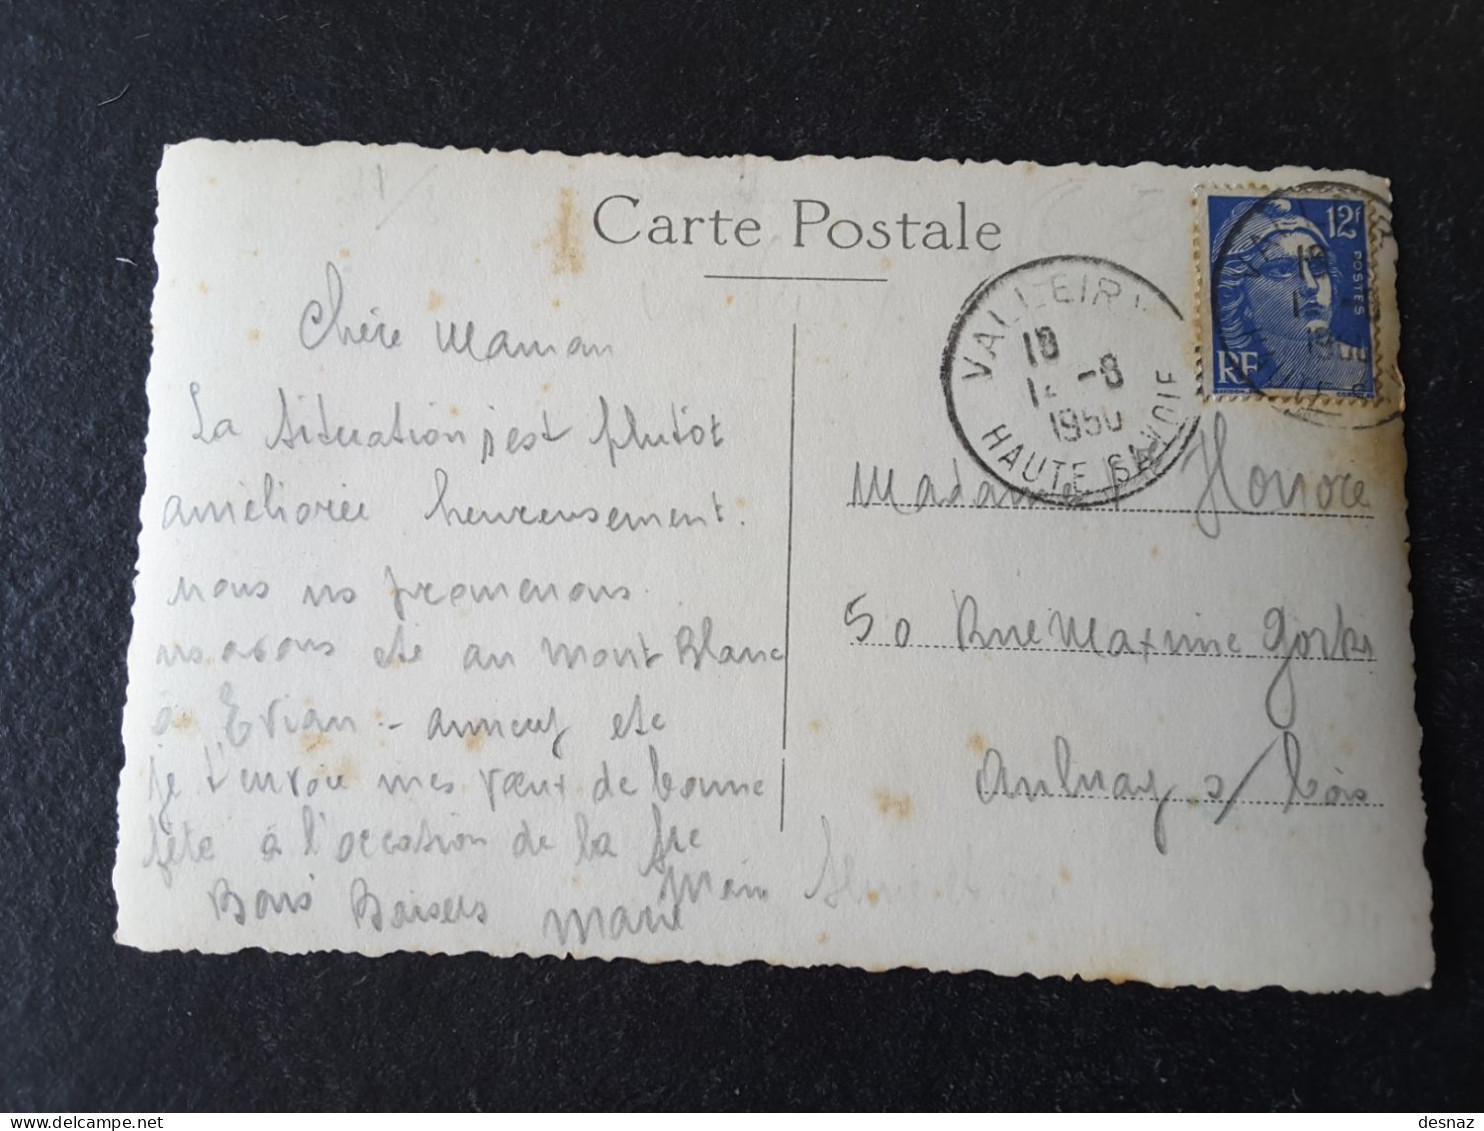 Carte Postale
Chère Maman
La situation s'est plutôt
améliorée heureusement.
nous ns promenons.
ns avons été au Mont Blanc
à Evian - annecy etc
je t'envoie mes vœux de bonne
fête à l'occasion de la Ste
Marie
Bons Baisers
VALLEIRY
18
12 -8
1950
HAUTE SAVOIE
12F
POSTES
RF
Madame Honoré
50 Rue Maxime Gorki
Aulnay s/ bois
desnaz